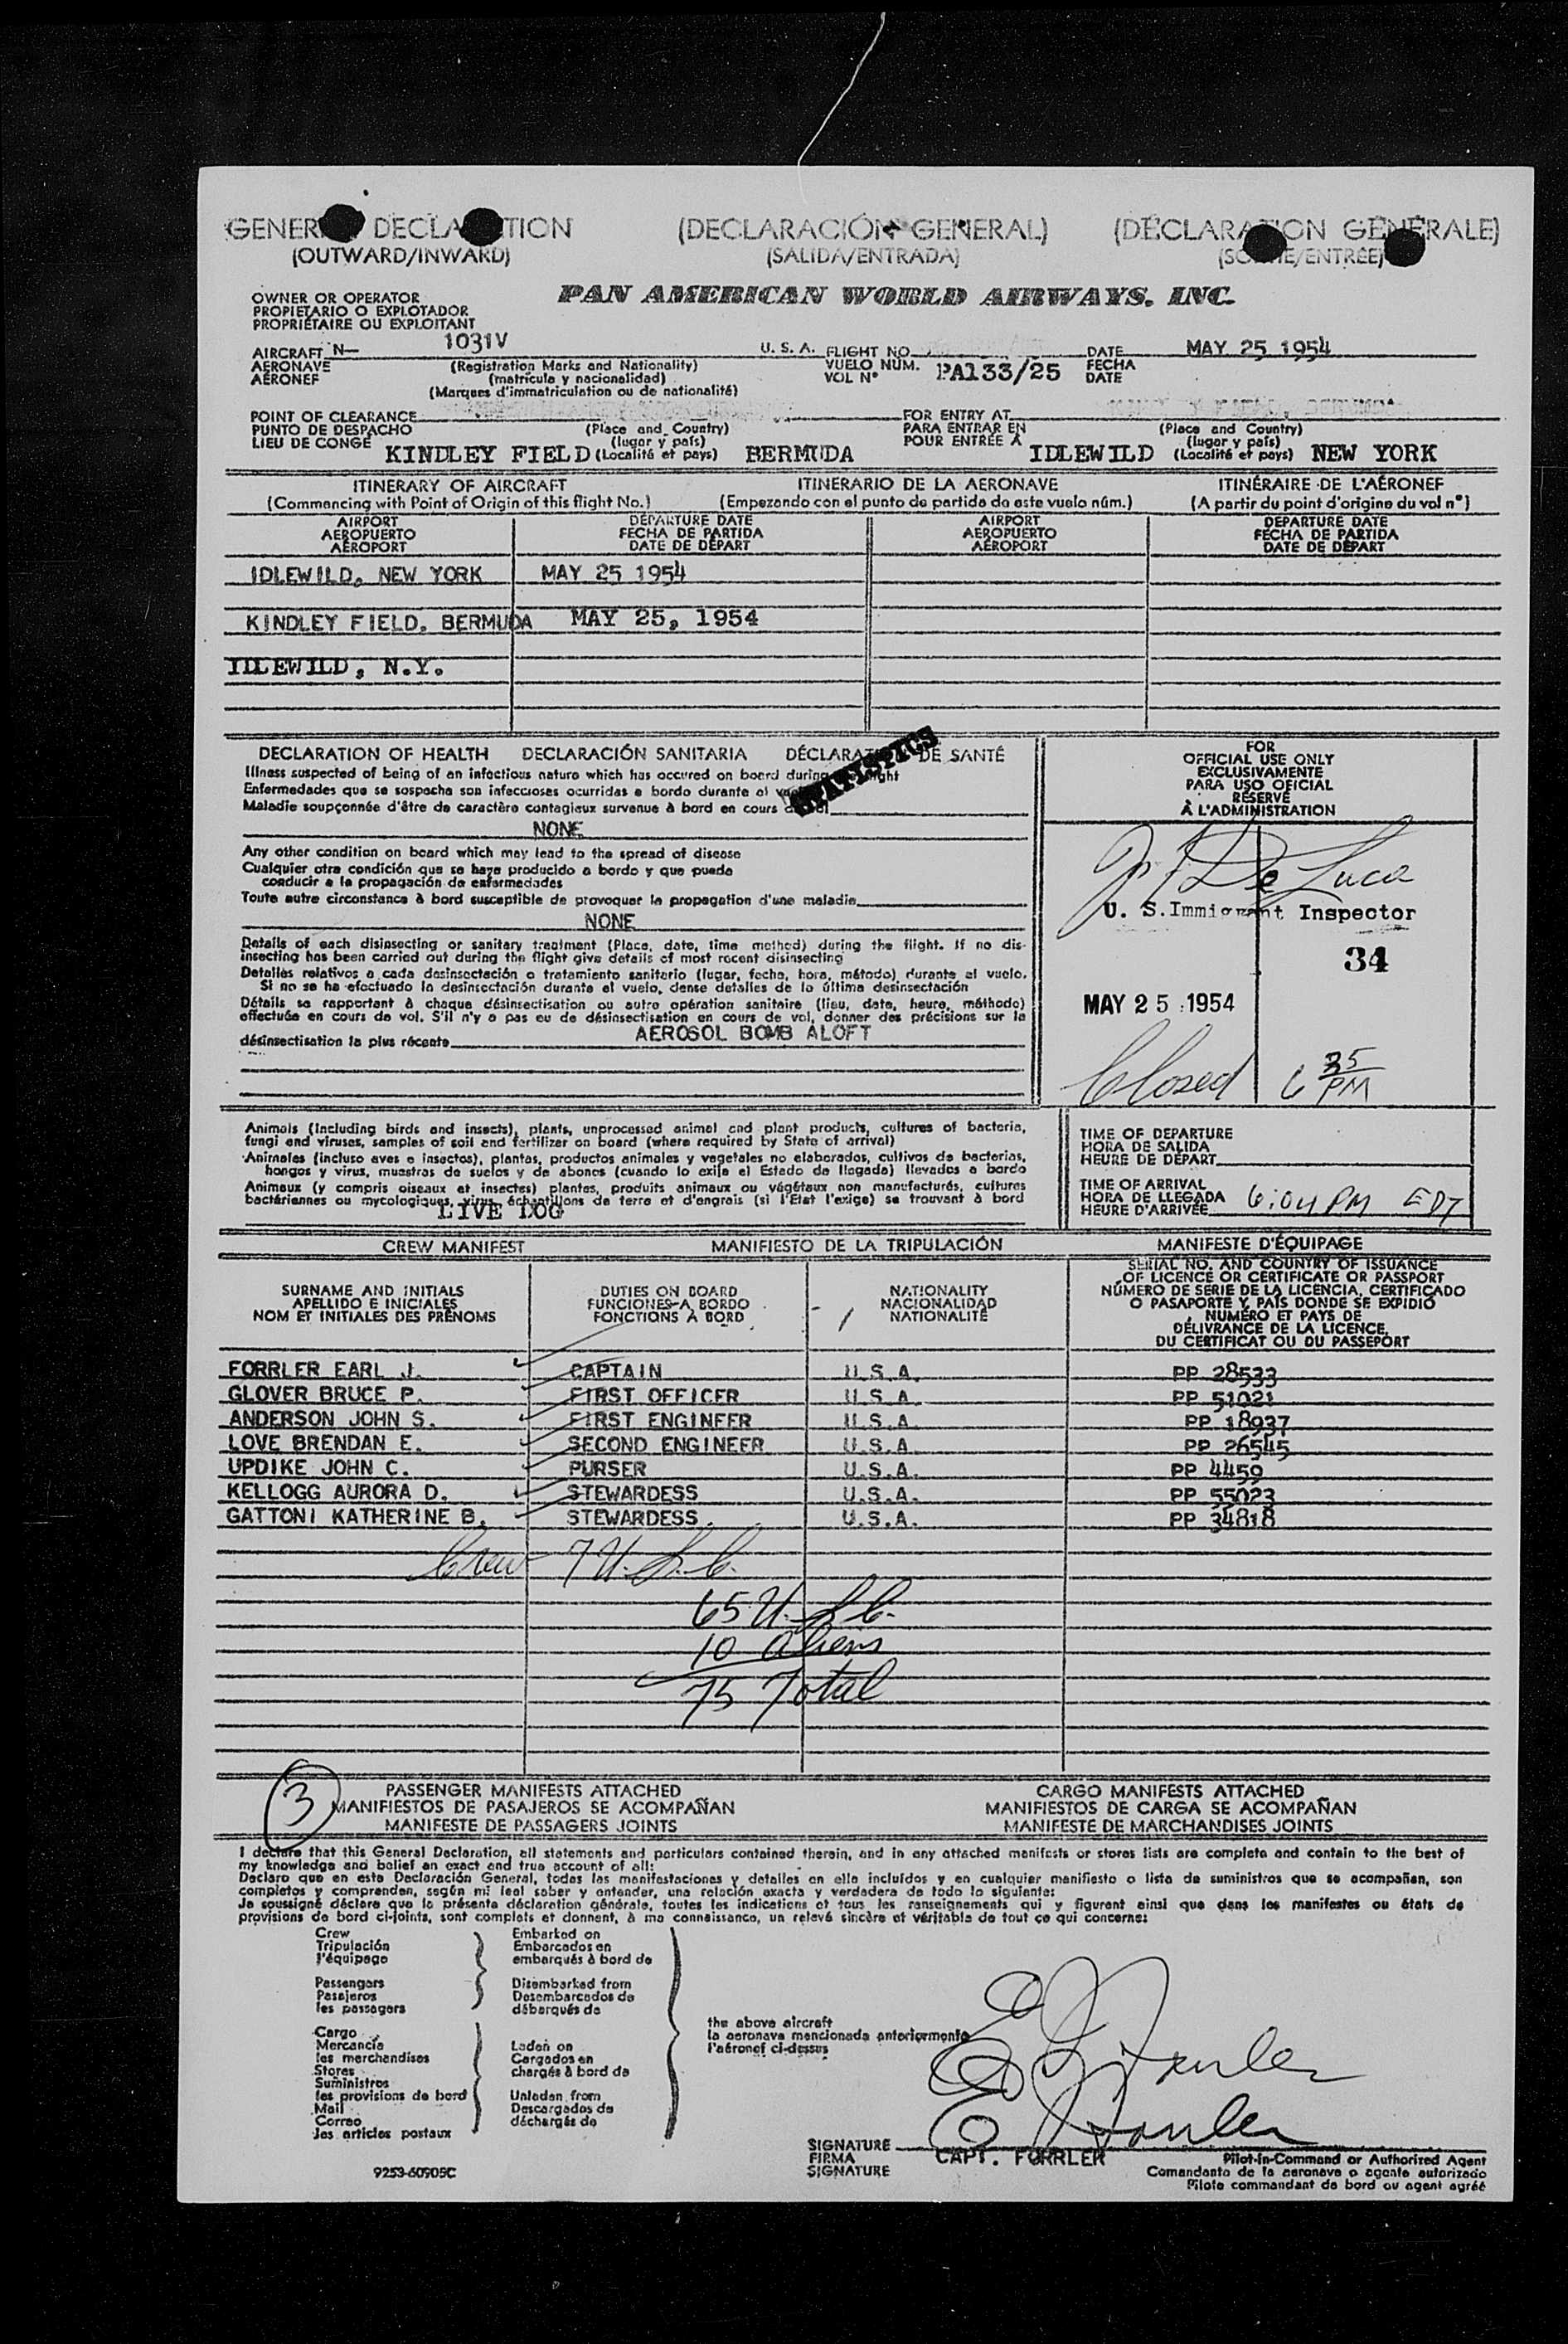 GENERAL DECLARATION (DECLARACIÓN GENERAL) (DÉCLARATION GÉNÉRALE)
(OUTWARD/INWARD) (SALIDA/ENTRADA) (SORTIE/ENTRÉE)
OWNER OR OPERATOR
PROPIETARIO O EXPLOTADOR
PROPRIÉTAIRE OU EXPLOITANT
PAN AMERICAN WORLD AIRWAYS, INC.
AIRCRAFT N— 1031V U. S. A. FLIGHT NO. DATE MAY 25 1954
AERONAVE (Registration Marks and Nationality) VUELO NÚM. PA133/25 FECHA
AÉRONEF (matrícula y nacionalidad) VOL Nº DATE
(Marques d'immatriculation ou de nationalité)
POINT OF CLEARANCE FOR ENTRY AT
PUNTO DE DESPACHO (Place and Country) PARA ENTRAR EN (Place and Country)
LIEU DE CONGÉ (lugar y país) POUR ENTRÉE À (lugar y país)
KINDLEY FIELD (Localité et pays) BERMUDA IDLEWILD (Localité et pays) NEW YORK
ITINERARY OF AIRCRAFT ITINERARIO DE LA AERONAVE ITINÉRAIRE DE L'AÉRONEF
(Commencing with Point of Origin of this flight No.) (Empezando con el punto de partida de este vuelo núm.) (A partir du point d'origine du vol nº)
AIRPORT DEPARTURE DATE AIRPORT DEPARTURE DATE
AEROPUERTO FECHA DE PARTIDA AEROPUERTO FECHA DE PARTIDA
AÉROPORT DATE DE DÉPART AÉROPORT DATE DE DÉPART
IDLEWILD, NEW YORK MAY 25 1954
KINDLEY FIELD, BERMUDA MAY 25, 1954
IDLEWILD, N.Y.
DECLARATION OF HEALTH DECLARACIÓN SANITARIA DÉCLARATION DE SANTÉ
STATISTICS
Illness suspected of being of an infectious nature which has occured on board during the flight
Enfermedades que se sospecha son infecciosas ocurridas a bordo durante el vuelo
Maladie soupçonnée d'être de caractère contagieux survenue à bord en cours de vol
NONE
Any other condition on board which may lead to the spread of disease
Cualquier otra condición que se haya producido a bordo y que pueda
conducir a la propagación de enfermedades
Toute autre circonstance à bord susceptible de provoquer la propagation d'une maladie
NONE
Details of each disinsecting or sanitary treatment (Place, date, time method) during the flight. If no dis-
insecting has been carried out during the flight give details of most recent disinsecting
Detalles relativos a cada desinsectación o tratamiento sanitario (lugar, fecha, hora, método) durante el vuelo.
Si no se ha efectuado la desinsectación durante el vuelo, dense detalles de la última desinsectación
Détails se rapportant à chaque désinsectisation ou autre opération sanitaire (lieu, date, heure, méthode)
effectuée en cours de vol. S'il n'y a pas eu de désinsectisation en cours de vol, donner des précisions sur la
désinsectisation la plus récente AEROSOL BOMB ALOFT
FOR
OFFICIAL USE ONLY
EXCLUSIVAMENTE
PARA USO OFICIAL
RÉSERVÉ
À L'ADMINISTRATION
De Luca
U. S. Immigrant Inspector
34
MAY 25 1954
Closed 6 35 PM
Animals (Including birds and insects), plants, unprocessed animal and plant products, cultures of bacteria,
fungi and viruses, samples of soil and fertilizer on board (where required by State of arrival)
Animales (incluso aves e insectos), plantas, productos animales y vegetales no elaborados, cultivos de bacterias,
hongos y virus, muestras de suelos y de abonos (cuando lo exija el Estado de llegada) llevados a bordo
Animaux (y compris oiseaux et insectes) plantes, produits animaux ou végétaux non manufacturés, cultures
bactériennes ou mycologiques, virus, échantillons de terre et d'engrais (si l'Etat l'exige) se trouvant à bord
LIVE DOG
TIME OF DEPARTURE
HORA DE SALIDA
HEURE DE DÉPART
TIME OF ARRIVAL
HORA DE LLEGADA 6:04 PM EDT
HEURE D'ARRIVÉE
CREW MANIFEST MANIFIESTO DE LA TRIPULACIÓN MANIFESTE D'ÉQUIPAGE
SURNAME AND INITIALS
APELLIDO E INICIALES
NOM ET INITIALES DES PRÉNOMS
DUTIES ON BOARD
FUNCIONES A BORDO
FONCTIONS À BORD
NATIONALITY
NACIONALIDAD
NATIONALITÉ
SERIAL NO. AND COUNTRY OF ISSUANCE
OF LICENCE OR CERTIFICATE OR PASSPORT
NÚMERO DE SERIE DE LA LICENCIA, CERTIFICADO
O PASAPORTE Y PAÍS DONDE SE EXPIDIÓ
NUMÉRO ET PAYS DE
DÉLIVRANCE DE LA LICENCE,
DU CERTIFICAT OU DU PASSEPORT
FORRLER EARL J. CAPTAIN U.S.A. PP 28533
GLOVER BRUCE P. FIRST OFFICER U.S.A. PP 51021
ANDERSON JOHN S. FIRST ENGINEER U.S.A. PP 18937
LOVE BRENDAN E. SECOND ENGINEER U.S.A. PP 26545
UPDIKE JOHN C. PURSER U.S.A. PP 4459
KELLOGG AURORA D. STEWARDESS U.S.A. PP 55023
GATTONI KATHERINE B. STEWARDESS U.S.A. PP 34818
Crew 7 U.S.C.
65 U.S.C.
10 aliens
75 Total
3
PASSENGER MANIFESTS ATTACHED CARGO MANIFESTS ATTACHED
MANIFIESTOS DE PASAJEROS SE ACOMPAÑAN MANIFIESTOS DE CARGA SE ACOMPAÑAN
MANIFESTE DE PASSAGERS JOINTS MANIFESTE DE MARCHANDISES JOINTS
I declare that this General Declaration, all statements and particulars contained therein, and in any attached manifests or stores lists are complete and contain to the best of
my knowledge and belief an exact and true account of all:
Declaro que en esta Declaración General, todas las manifestaciones y detalles en ella incluídos y en cualquier manifiesto o lista de suministros que se acompañan, son
completos y comprenden, según mi leal saber y entender, una relación exacta y verdadera de todo lo siguiente:
Je soussigné déclare que la présente déclaration générale, toutes les indications et tous les renseignements qui y figurent ainsi que dans les manifestes ou états de
provisions de bord ci-joints, sont complets et donnent, à ma connaissance, un relevé sincère et véritable de tout ce qui concerne:
Crew Embarked on
Tripulación Embarcados en
l'équipage embarqués à bord de
Passengers Disembarked from
Pasajeros Desembarcados de
les passagers débarqués de
the above aircraft
la aeronave mencionada anteriormente
l'aéronef ci-dessus
Cargo
Mercancía Laden on
les marchandises Cargados en
Stores chargés à bord de
Suministros
les provisions de bord Unladen from
Mail Descargados de
Correo déchargés de
les articles postaux
E J Forrler
E J Forrler
SIGNATURE
FIRMA CAPT. FORRLER Pilot-in-Command or Authorized Agent
SIGNATURE Comandante de la aeronave o agente autorizado
9253-60905C Pilote commandant de bord ou agent agréé